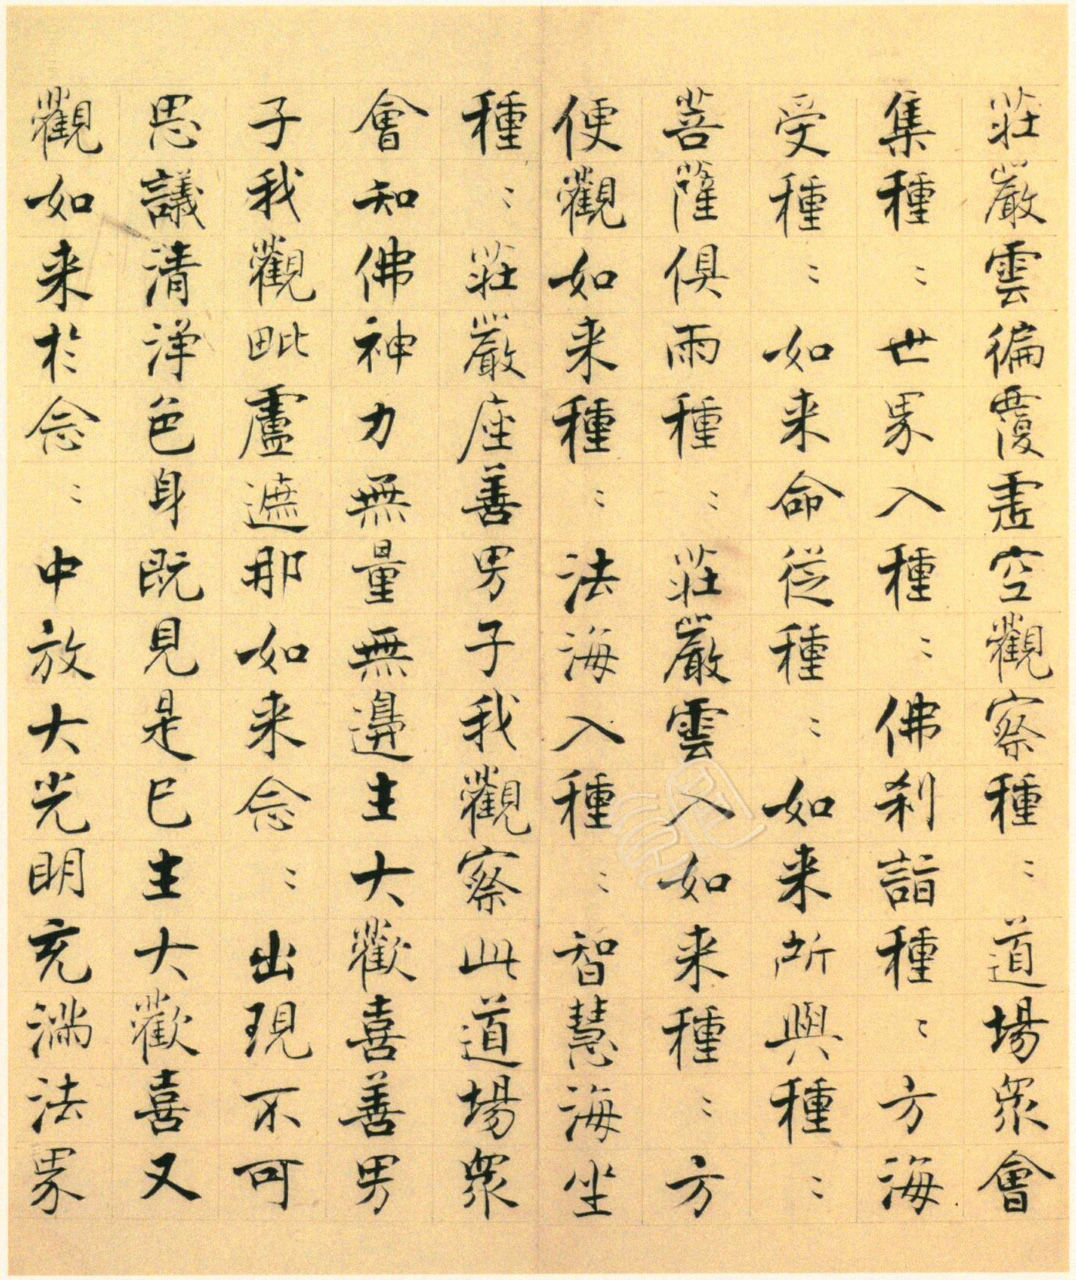 莊嚴雲徧覆虛空觀察種：道場衆會
集種：世界入種：佛刹詣種：方海
受種：如来命從種：如来所與種：
菩薩俱雨種：莊嚴雲入如来種：方
便觀如来種：法海入種：智慧海坐
種：莊嚴座善男子我觀察此道場衆
會知佛神力無量無邊生大歡喜善男
子我觀毗盧遮那如来念：出現不可
思議清淨色身既見是已生大歡喜又
觀如来於念：中放大光明充滿法界